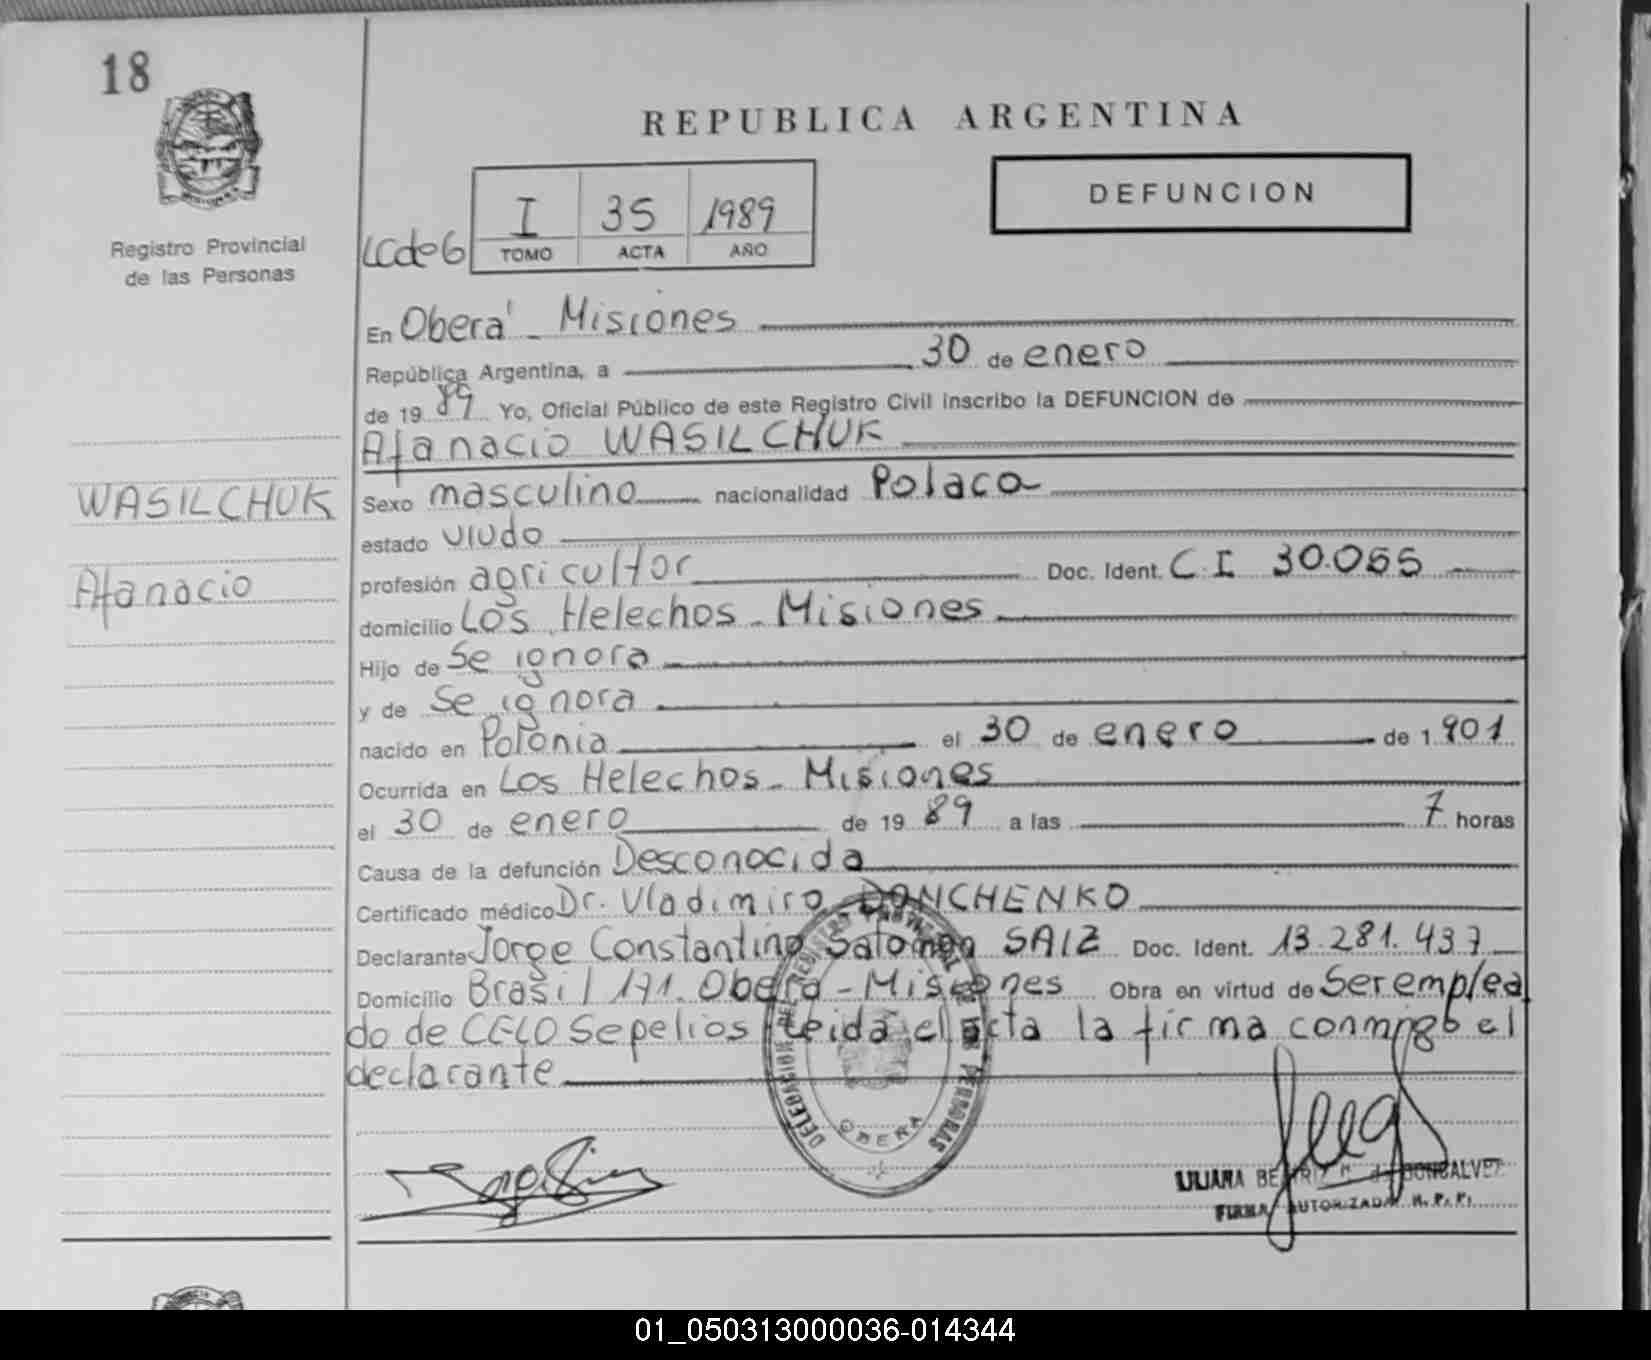 18
REPUBLICA ARGENTINA
DEFUNCION
I 35 1989
TOMO ACTA AÑO
Registro Provincial
de las Personas
En Oberá - Misiones
República Argentina, a 30 de enero
de 19 89 Yo, Oficial Público de este Registro Civil inscribo la DEFUNCION de
Afanacio WASILCHUK
WASILCHUK
Afanacio
Sexo masculino nacionalidad Polaca
estado viudo
profesión agricultor Doc. Ident. C.I 30.055
domicilio Los Helechos - Misiones
Hijo de Se ignora
y de Se ignora
nacido en Polonia el 30 de enero de 1 901
Ocurrida en Los Helechos - Misiones
el 30 de enero de 19 89 a las 7 horas
Causa de la defunción Desconocida
Certificado médico Dr. Vladimiro DONCHENKO
Declarante Jorge Constantino Salomon SAIZ Doc. Ident. 13.281.437
Domicilio Brasil 171. Oberá - Misiones Obra en virtud de Ser emplea
do de CELO Sepelios Leida el acta la firma conmigo el
declarante
DELEGACION DEL REGISTRO PROVINCIAL DE LAS PERSONAS
OBERA
LILIANA BEATRIZ de GONCALVEZ
FIRMA AUTORIZADA R. P. P.
01_050313000036-014344